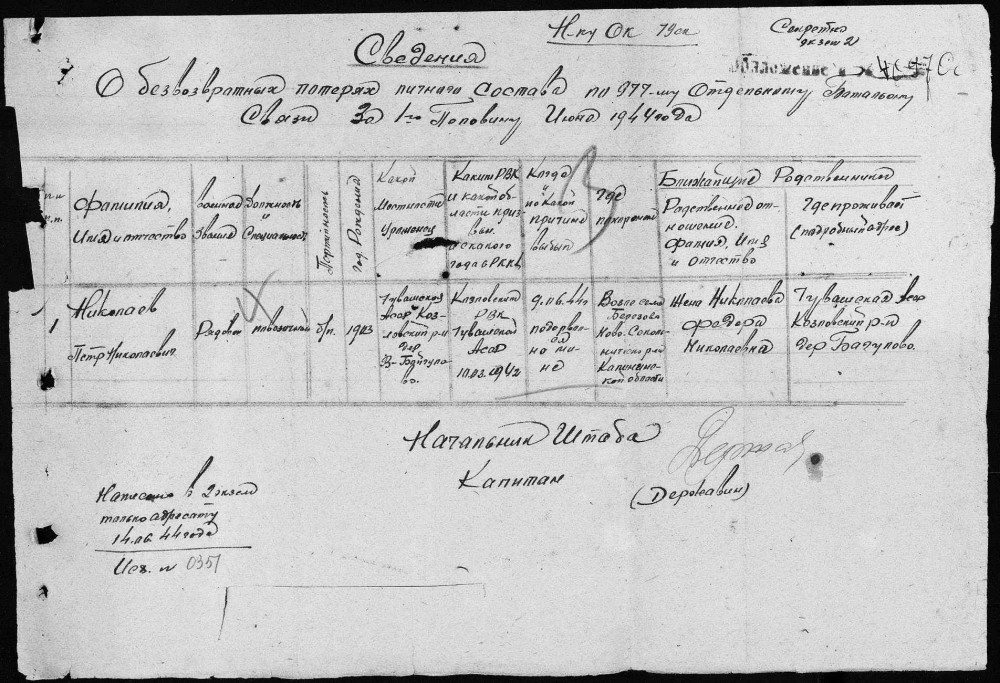 Н-ку Ок 79 ск
Секретно
экз № 2
Сведения
О безвозвратных потерях личного состава по 977-му Отдельному Батальону
Связи За 1-ю Половину Июня 1944 года
Фамилия,
Имя и отчество
военное
Звание
Должность
и
Специальность
Партийность
год Рождения
Какой
Местности
Уроженец
Каким РВК
и какой об-
ласти приз-
ван.
и с какого
года в РККА
Когда
и
по какой
причине
выбыл
Где
похоронен
Ближайшие Родственники
Родственное от-
ношение.
фамил. Имя
и отчество
Где проживает
(подробный адрес)
1
Николаев
Петр Николаевич
Рядовой
повозочный
б/п.
1903
Чувашской
Асср Коз-
ловский р-н
дер
Козловский
РВК
Чувашской
Асср
10.03.1942
9.06.44г
подорвал
ся
на ми-
не
Березово
Калининс-
кой области
Жена Николаева
Федора
Николаевна
Чувашская Асср
Козловский р-н
Дер Байгулово.
Начальник Штаба
Капитан
(Державин)
Написано в 2 экзем
только адресату
14.06.44 года
Исх. № 0351